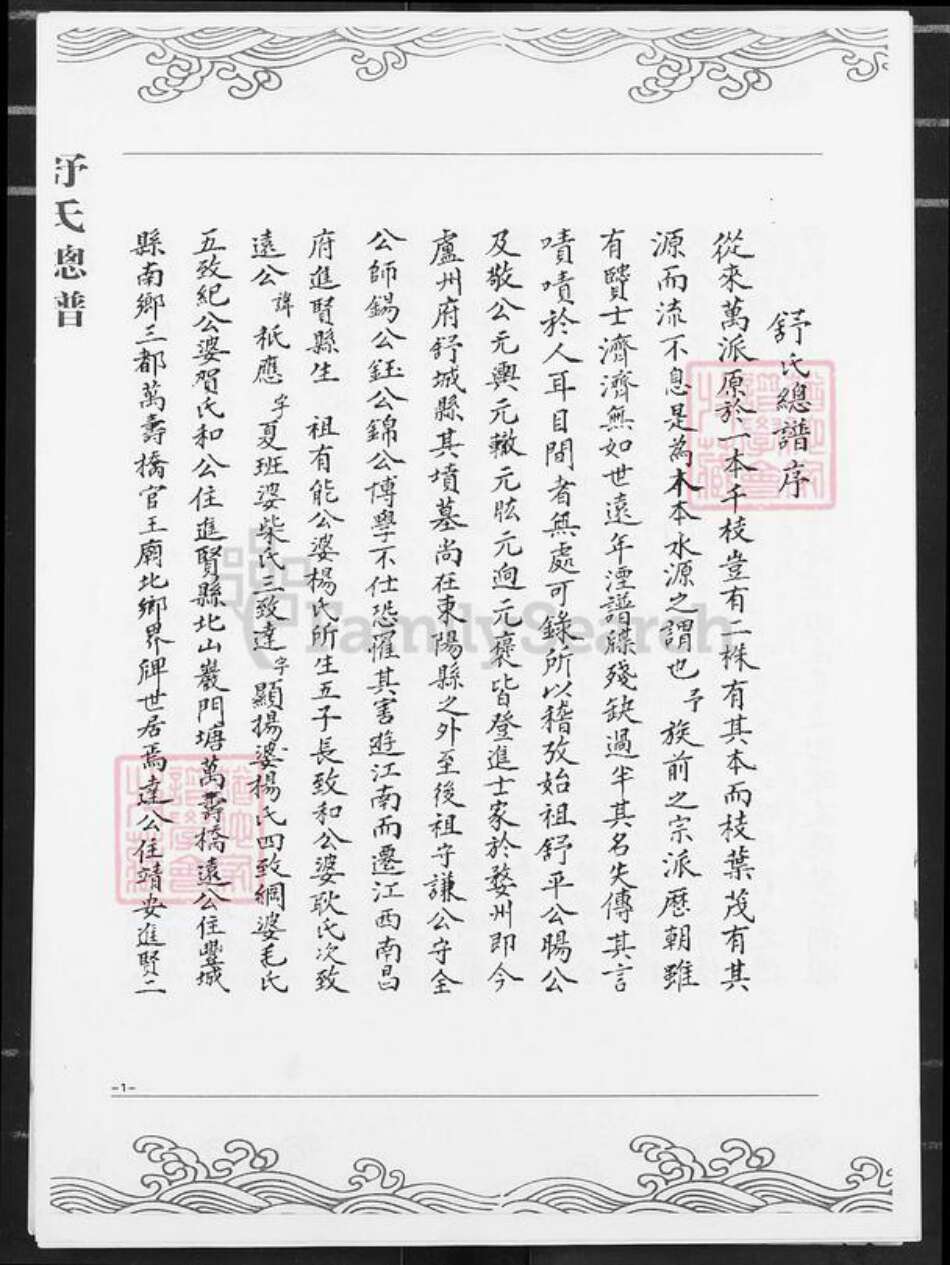 舒氏總譜序
從來萬派原於一本千枝豈有二株有其本而枝葉茂有其
源而流不息是為木本水源之謂也予族前之宗派歷朝雖
有賢士濟濟無如世遠年湮譜牒殘缺過半其名失傳其言
嘖嘖於人耳目間者無處可錄所以稽攷始祖舒平公暘公
及敬公元輿元轍元肱元迥元褒皆登進士家於婺州即今
廬州府舒城縣其墳墓尚在東陽縣之外至後祖守謙公守全
公師錫公鈺公錦公博學不仕恐罹其害遊江南而遷江西南昌
府進賢縣生 祖有能公婆楊氏所生五子長致和公婆耿氏次致
遠公諱祇應字夏班婆柴氏三致達字顯揚婆楊氏四致綱婆毛氏
五致紀公婆賀氏和公住進賢縣北山巖門塘萬壽橋遠公住豐城
縣南鄉三都萬壽橋官王廟北鄉界牌世居焉達公住靖安進賢二
舒氏總譜
-1-
FamilySearch